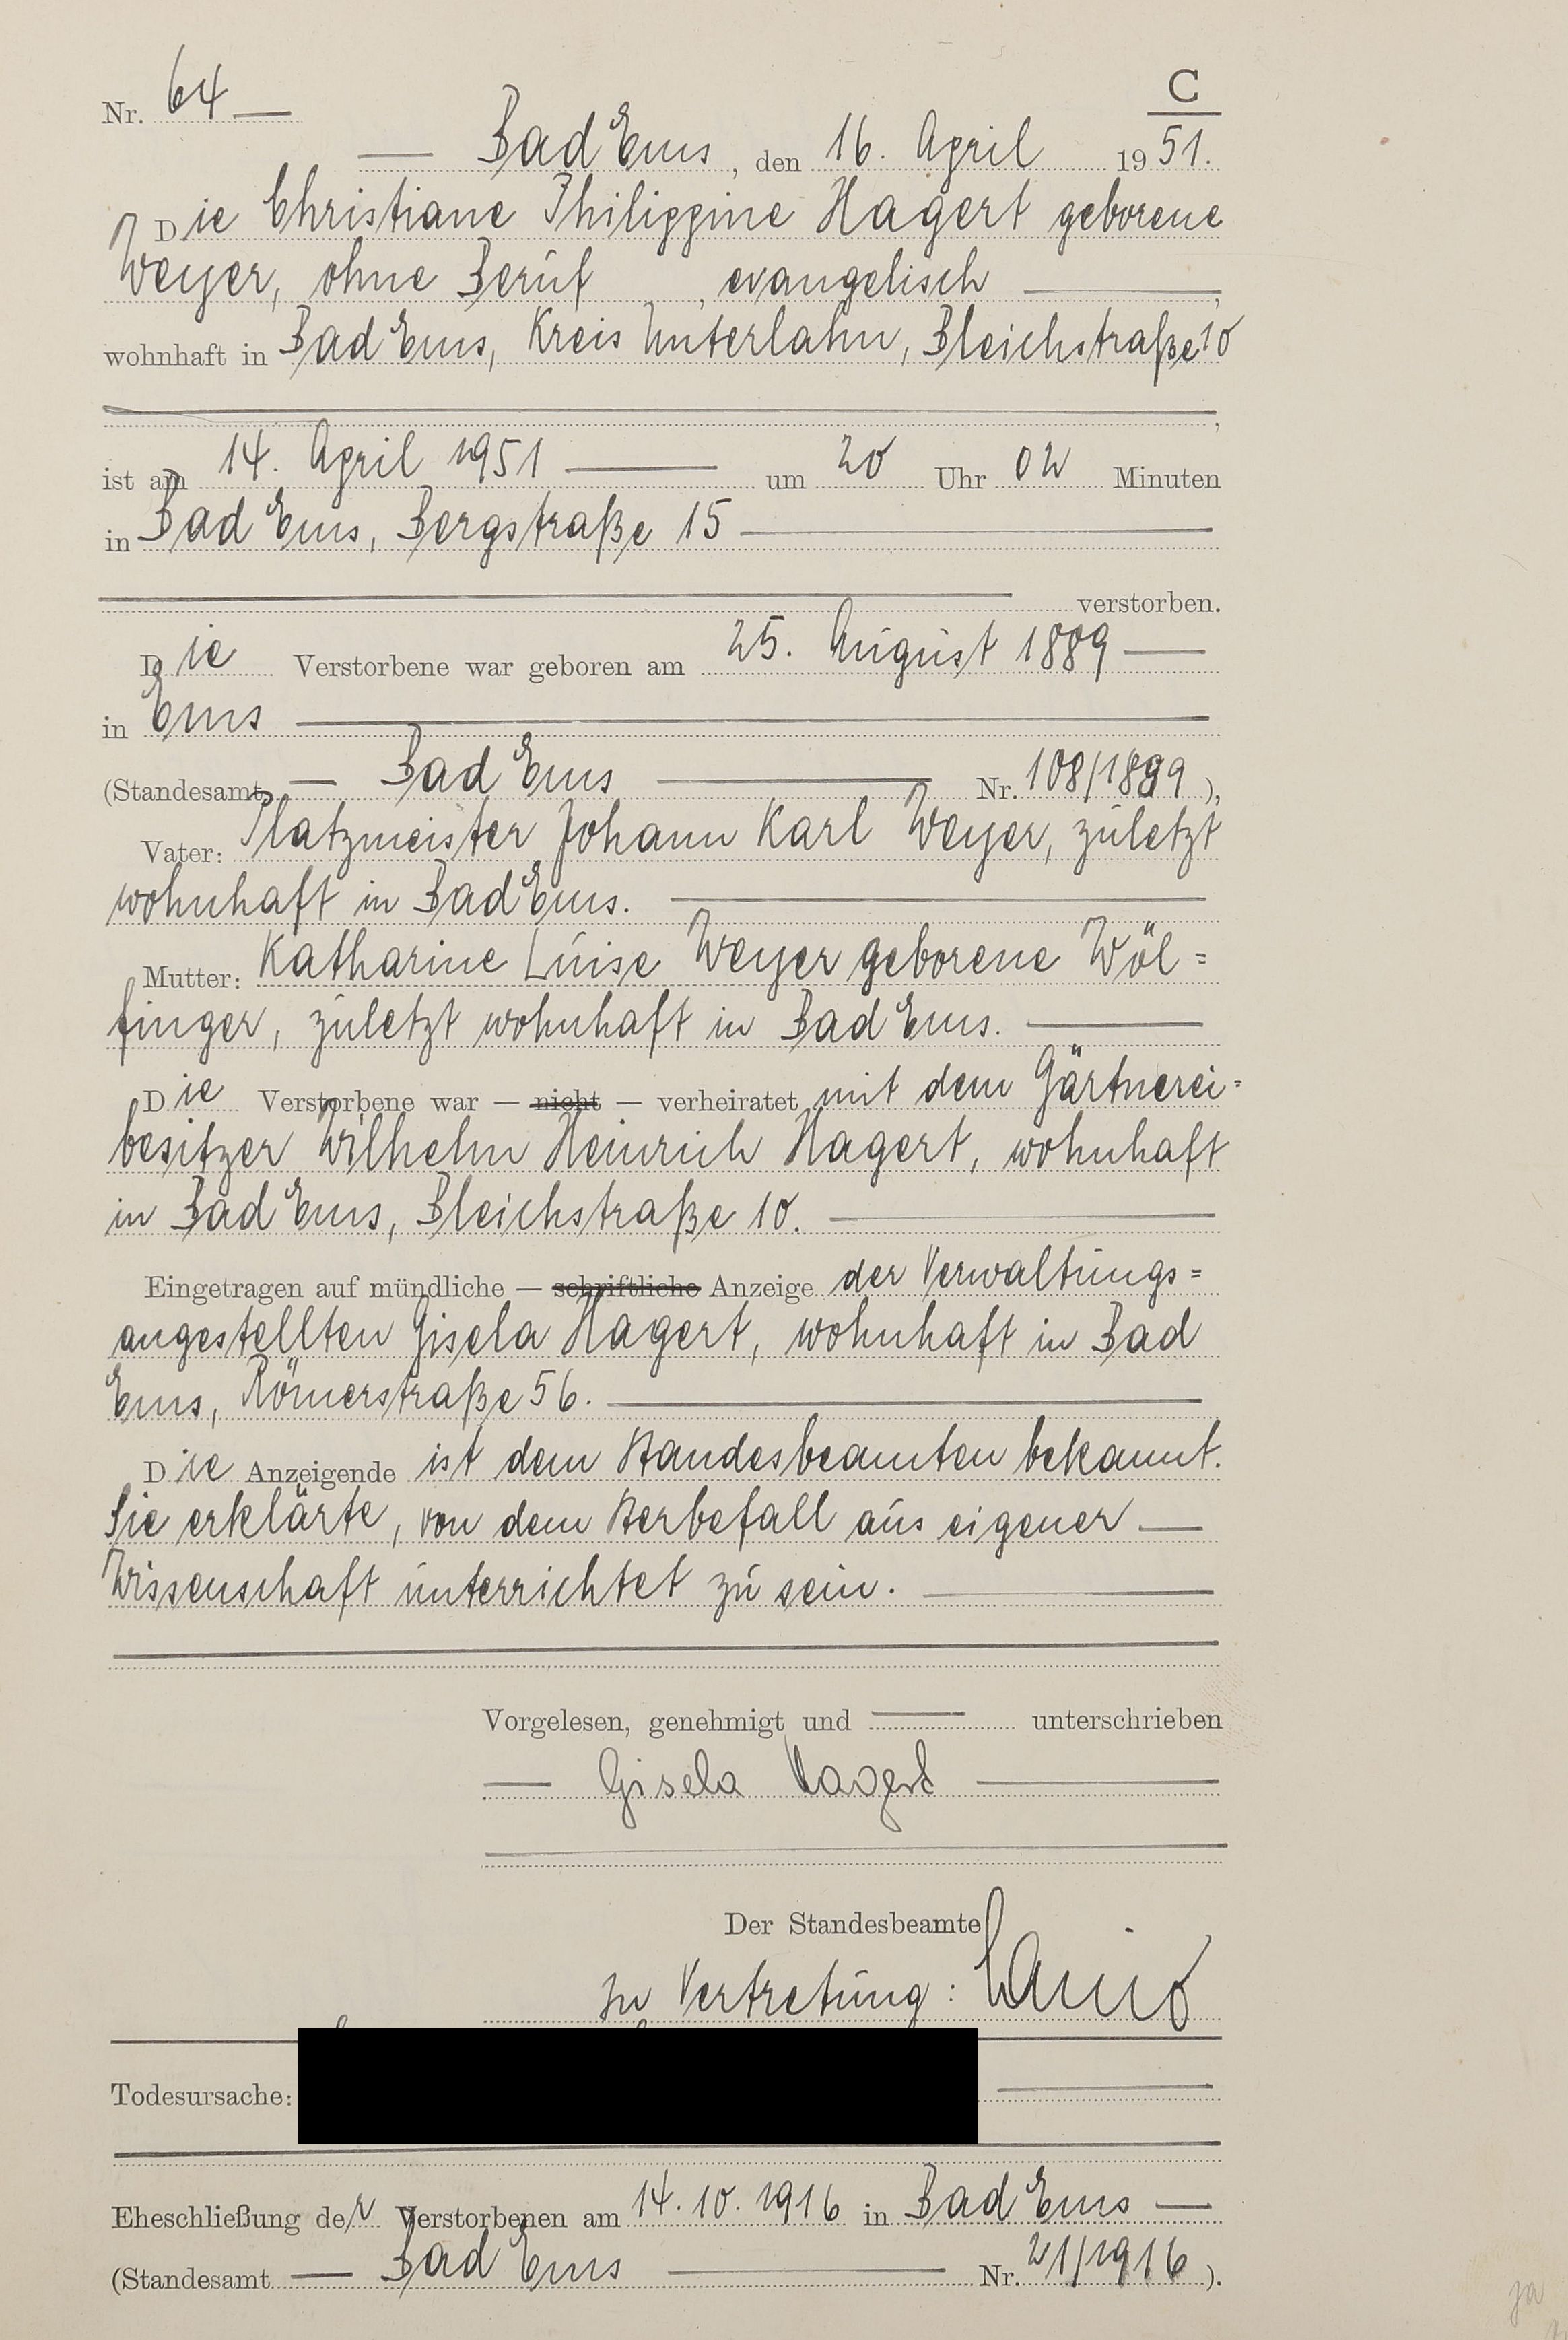 C
Nr. 64
Bad Ems, den 16. April 1951.
Die Christiane Philippine Hagert geborene
Weyer, ohne Beruf, evangelisch,
wohnhaft in Bad Ems, Kreis Unterlahn, Bleichstraße 10
,
ist am 14. April 1951 um 20 Uhr 02 Minuten
in Bad Ems, Bergstraße 15
verstorben.
Die Verstorbene war geboren am 25. August 1889
in Ems
(Standesamt Bad Ems Nr. 108/1889),
Vater: Platzmeister Johann Karl Weyer, zuletzt
wohnhaft in Bad Ems.
Mutter: Katharine Luise Weyer geborene Wöl=
finger, zuletzt wohnhaft in Bad Ems.
Die Verstorbene war — nicht — verheiratet mit dem Gärtnerei=
besitzer Wilhelm Heinrich Hagert, wohnhaft
in Bad Ems, Bleichstraße 10.
Eingetragen auf mündliche — schriftliche Anzeige der Verwaltungs=
angestellten Gisela Hagert, wohnhaft in Bad
Ems, Römerstraße 56.
Die Anzeigende ist dem Standesbeamten bekannt.
Sie erklärte, von dem Sterbefall aus eigener
Wissenschaft unterrichtet zu sein.
Vorgelesen, genehmigt und unterschrieben
Gisela Hagert
Der Standesbeamte
In Vertretung:
Todesursache:
Eheschließung der Verstorbenen am 14.10.1916 in Bad Ems
(Standesamt Bad Ems Nr. 21/1916).
ja